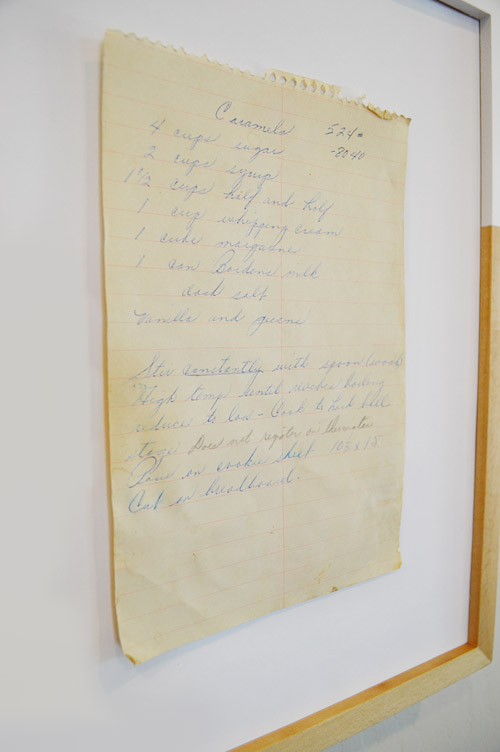 Caramels 5240
4 cups sugar -8040
2 cups syrup
1 1/2 cups half and half
1 cup whipping cream
1 cube margarine
1 can Bordens milk
dash salt
Vanilla and
Stir constantly with spoon (wood)
on High temp until reaches boiling
reduce to low - Cook to
stage Does not register on thermometer
Pour on cookie sheet 10 x 15
Cut on breadboard.